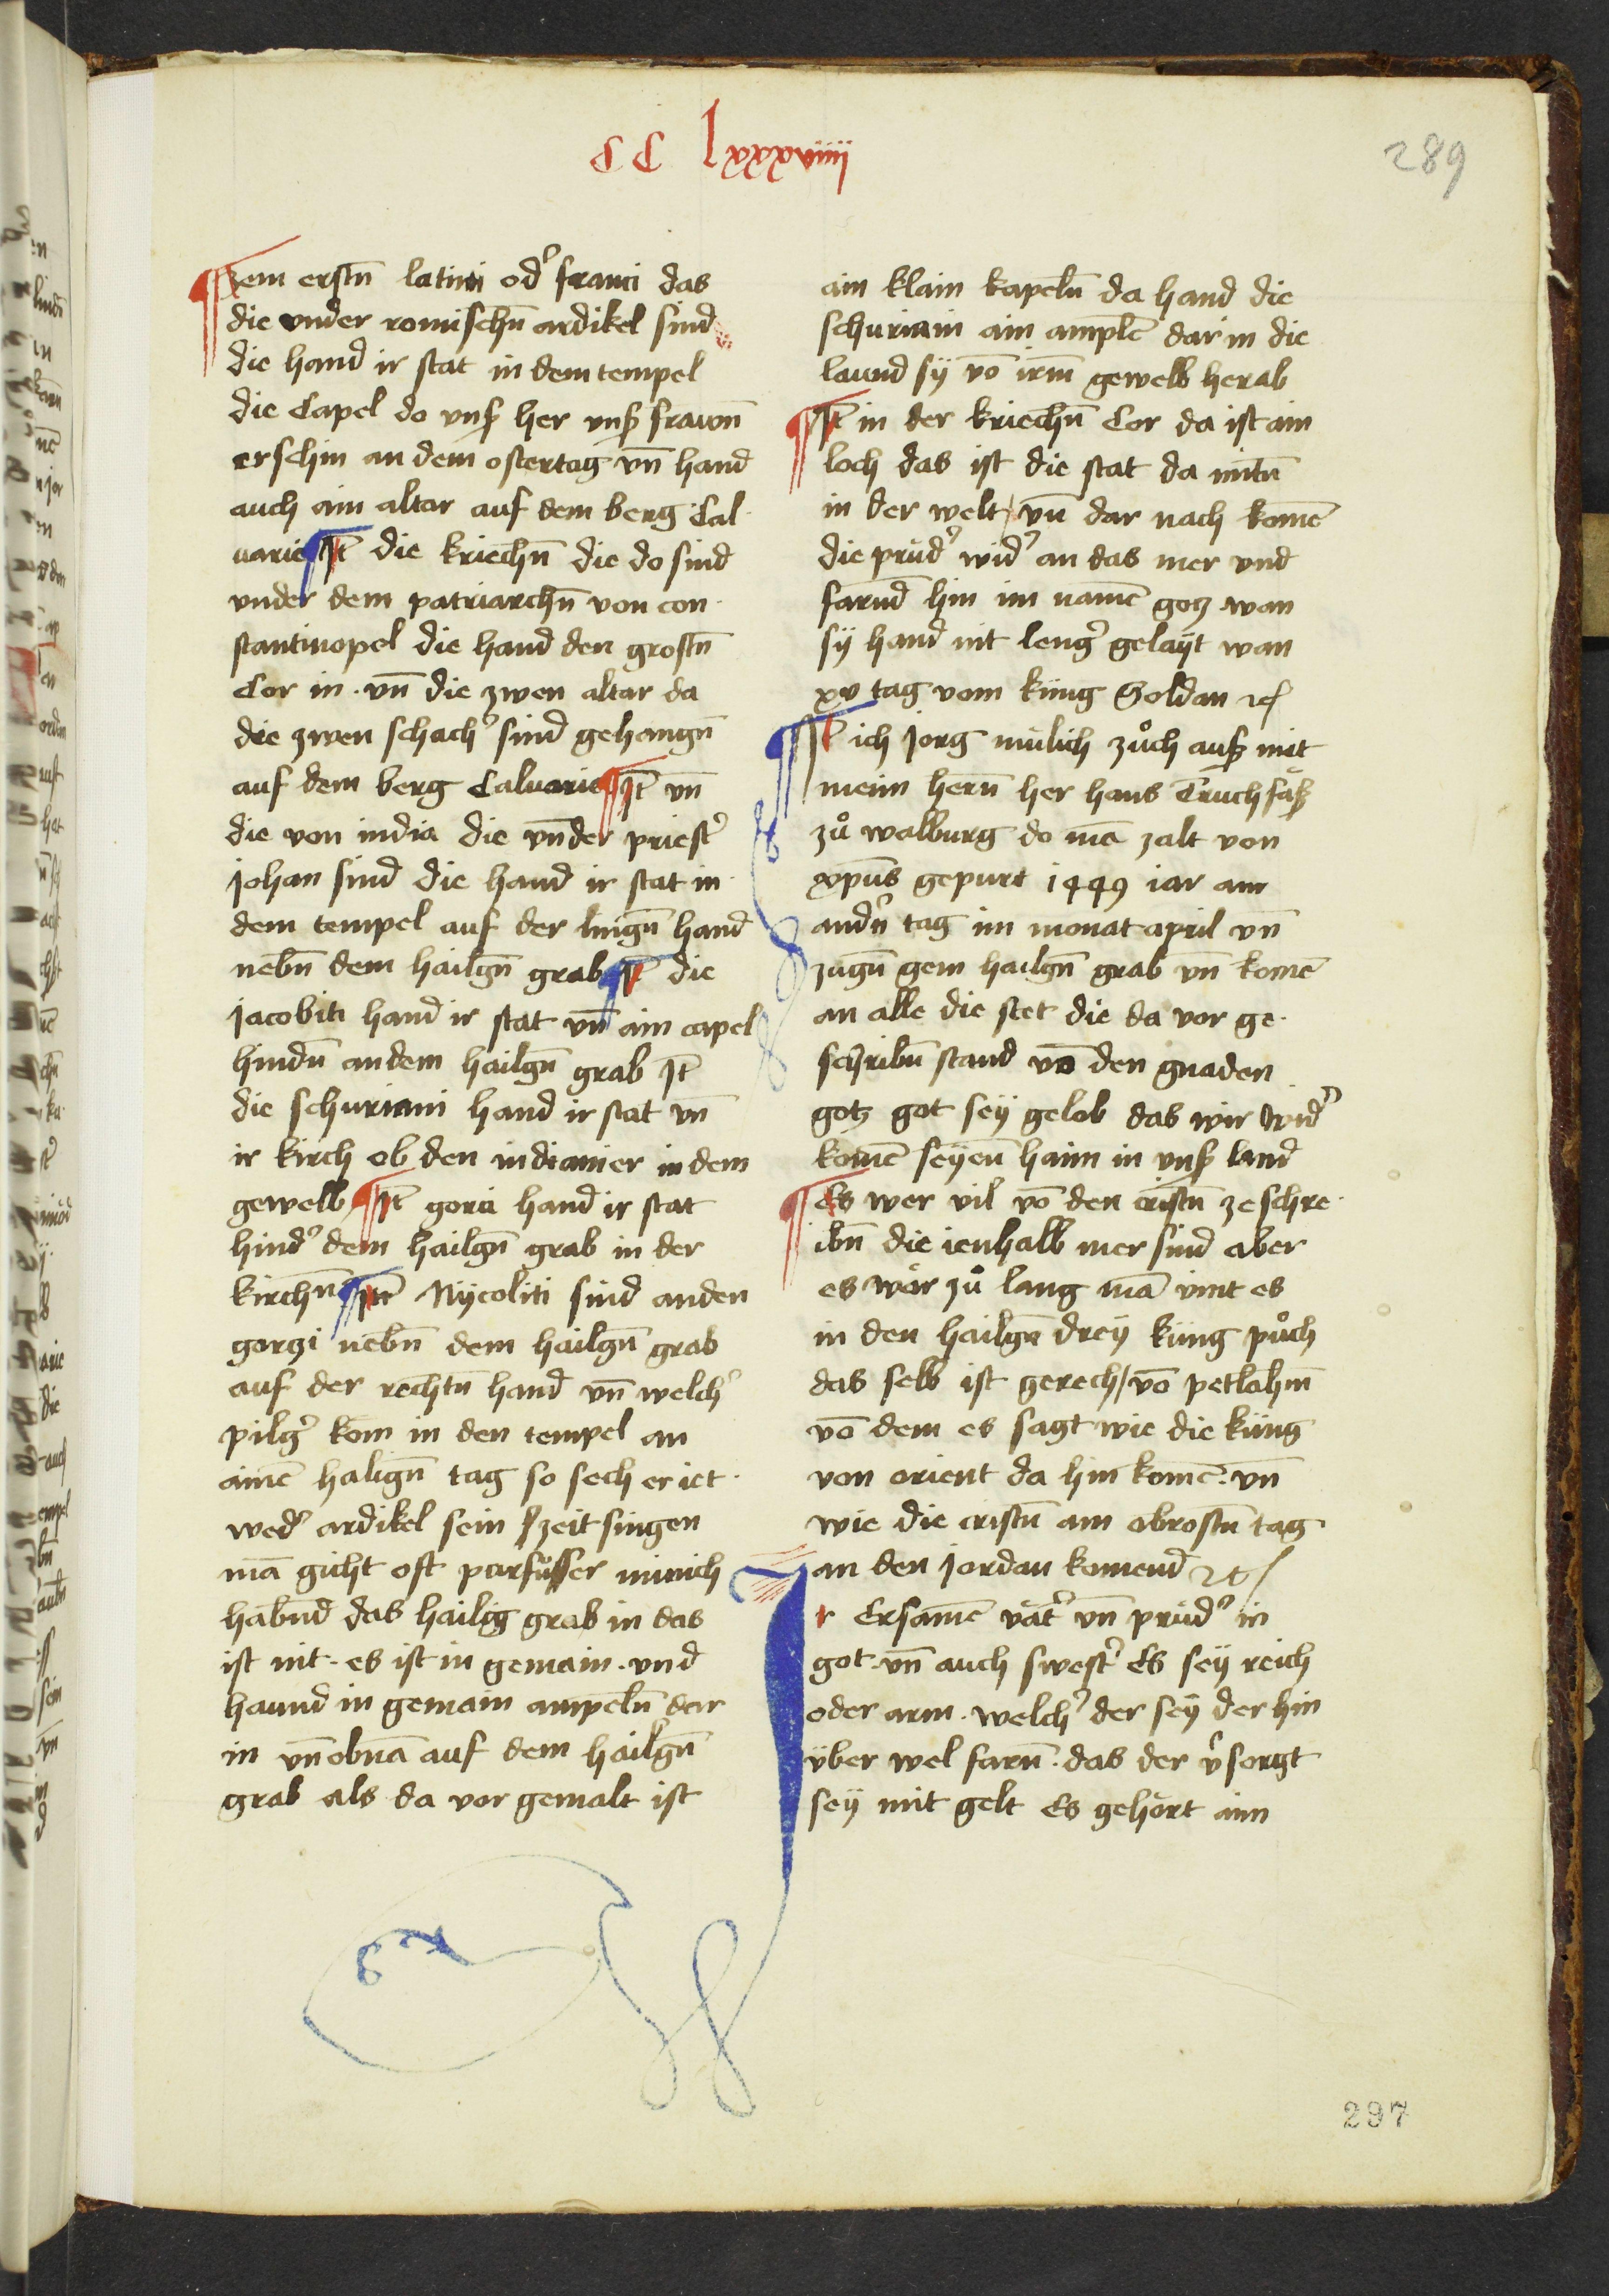 CC lxxxxviiij
289
¶ zem erstn̄ latini od' franci das
die vnder romischn̄ ardikel sind
die hand ir stat in dem tempel
die Capel do vnsß her vnsß frawn̄
erschin an dem ostertag vn̄ hand
auch ain altar auf dem berg Cal
uarie ¶ It̄ die kriechn̄ die do sind
vnder dem patriarchn̄ von con
stantinopel die hand den grostn̄
Cor in . vn̄ die zwen altar da
die zwen schach' sind gehangn̄
auf dem berg Caluarie ¶ It̄ vn̄
die von india die vn̄der priest'
johan sind die hand ir stat in
dem tempel auf der lingn̄ hand
nebn̄ dem hailgn̄ grab ¶ It̄ die
jacobiti hand ir stat vn̄ ain capel
hindn̄ an dem hailgn̄ grab It̄
die schuriani hand ir stat vn̄
ir kirch ob den indianier in dem
gewelb ¶ It̄ gorci hand ir stat
hind' dem hailgn̄ grab in der
kirchn̄ ¶ It̄ Nÿcoliti sind an den
gorgi nebn̄ dem hailgn̄ grab
auf der rechtn̄ hand vn̄ welch'
pilg' kom in den tempel an
aimē halign̄ tag so sech er iet
wed' ardikel sein zeit singen
mā gicht oft parfůsser minich
habn̄d das hailig grab in das
ist nit . es ist in gemain . vnd
haund in gemain ampeln̄ dar
in vn̄ obnā auf dem hailgn̄
grab als da vor gemalt ist
ain klain kapeln̄ da hand die
schuriain ain amplē dar in die
laund sÿ vō irm̄ gewelb herab
¶ It̄ in der kriechn̄ Cor da ist ain
loch das ist die stat da mitn̄
in der welt / vn̄ dar nach komē
die průd' wid' an das mer vnd
farnd hin im namē gotz wan
sÿ hand nit leng' gelaÿt wan
xv tag vom küng Soldan ⁊c
¶ It̄ ich Jorg mülich zůch auß mit
meim hern̄ her hans Truchsäß
zů walburg do mā zalt von
xp̄us gepurt 1449 iar am
andn̄ tag im monat april vn̄
zugn̄ gem hailgn̄ grab vn̄ komē
an alle die stet die da vor ge
schribn̄ stand vō den gnaden
gotz got seÿ gelob das wir wid'
komē seÿen haim in vnsß land
¶ Es wer vil vō den cristn̄ ze schre
ibn̄ die ienhalb mer sind aber
es wär zů lang mā vint es
in den hailgn̄ dreÿ küng půch
das selb ist gerech / vō petlahm̄
vō dem es sagt wie die küng
von orient da hin komē . vn̄
wie die cristn̄ am obrostn̄ tag
an den jordan komend ⁊c
Ir Ersamē vät' vn̄ prüd' in
got . vn̄ auch swest' Es seÿ reich
oder arm . welch' der seÿ der hin
über wel farn̄ . das der v'sorgt
seÿ mit gelt Es gehört aim
297